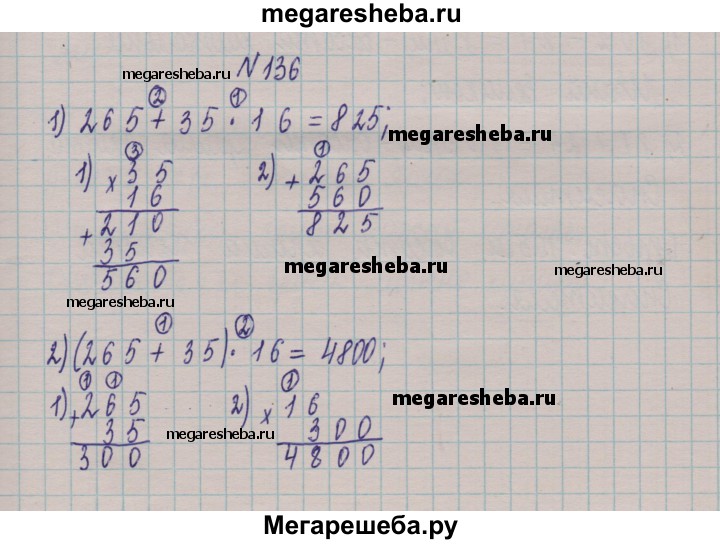 megaresheba.ru
megaresheba.ru N 136
② ①
1) 265 + 35 · 16 = 825; megaresheba.ru
③ ①
1) × 35 2) + 265
16 560
+ 210 825
35
560 megaresheba.ru megaresheba.ru
megaresheba.ru
① ②
2) (265 + 35) · 16 = 4800;
① ① ①
1) + 265 2) × 16 megaresheba.ru
35 megaresheba.ru 300
300 4800
Мегарешеба.ру